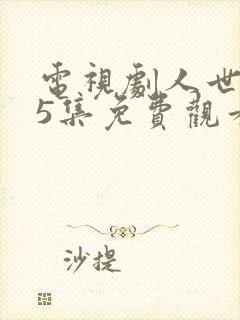 電視劇人世
5集免費觀
沙提